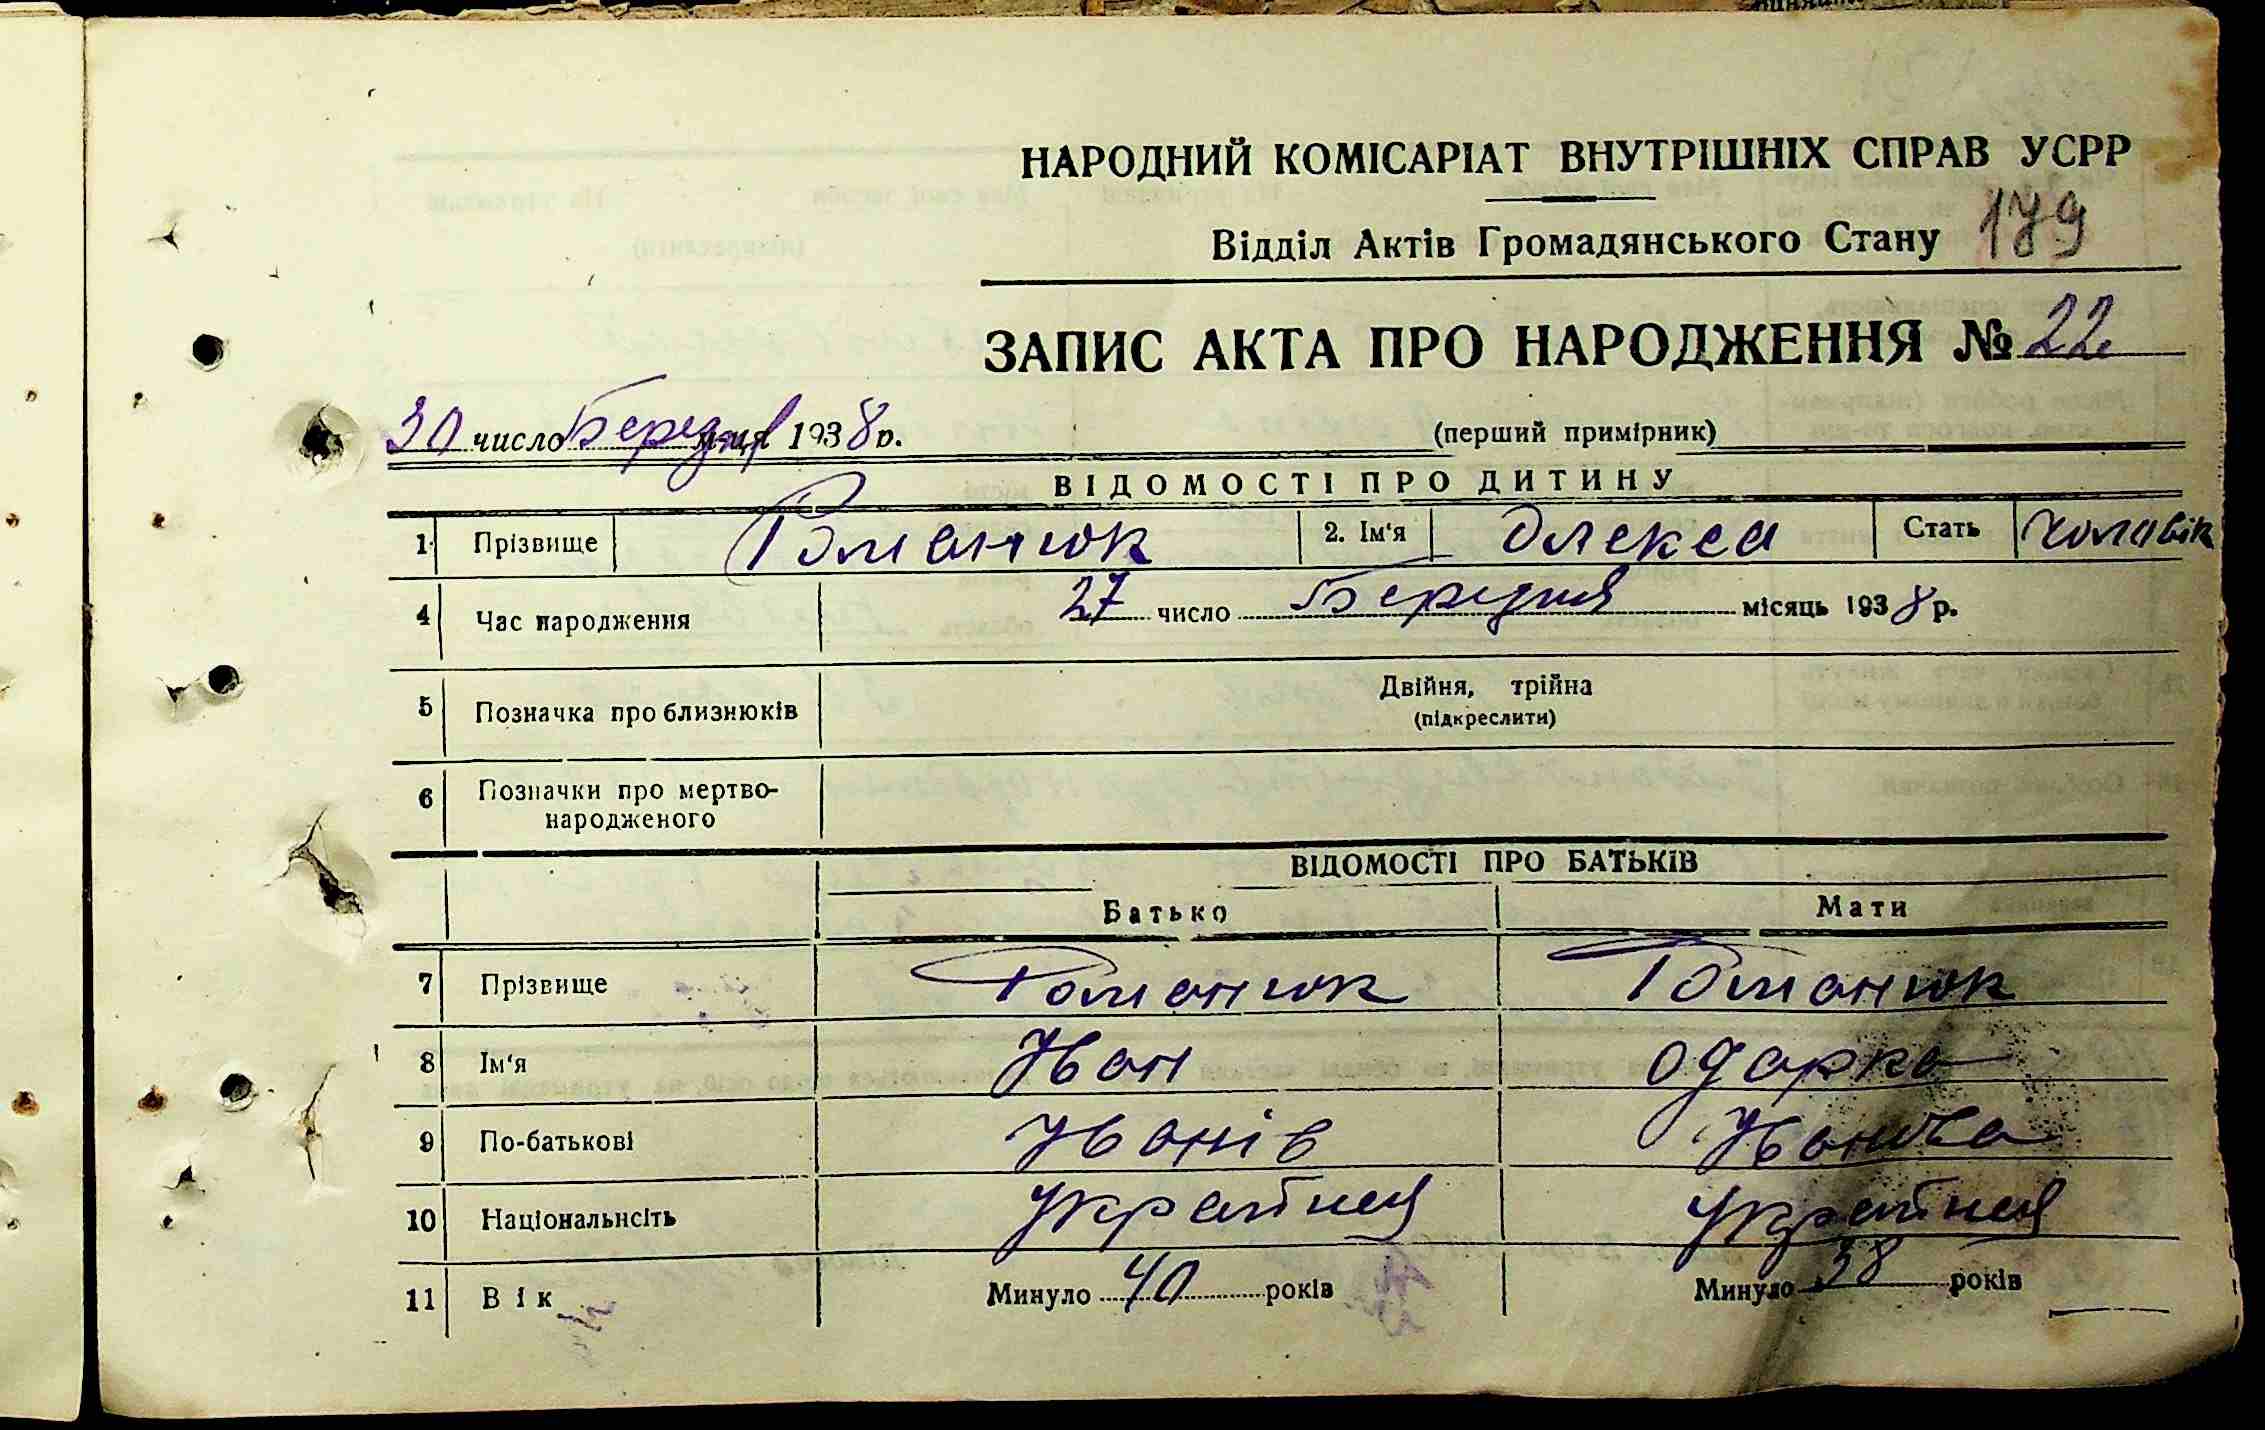 НАРОДНИЙ КОМІСАРІАТ ВНУТРІШНІХ СПРАВ УСРР
Відділ Актів Громадянського Стану 179
ЗАПИС АКТА ПРО НАРОДЖЕННЯ № 22
30 число Березня м-ця 1938 р. (перший примірник)
ВІДОМОСТІ ПРО ДИТИНУ
1. Прізвище Романюк 2. Ім'я Олекса Стать Чоловік
4 Час народження 27 число Березня місяць 1938 р.
5 Позначка про близнюків Двійня, трійна
(підкреслити)
6 Позначки про мертво-
народженого
ВІДОМОСТІ ПРО БАТЬКІВ
Батько Мати
7 Прізвище Романюк Романюк
8 Ім'я Іван Одарка
9 По-батькові Іванів Іванова
10 Національнсіть Україnец Українка
11 Вік Минуло 40 років Минуло 38 років